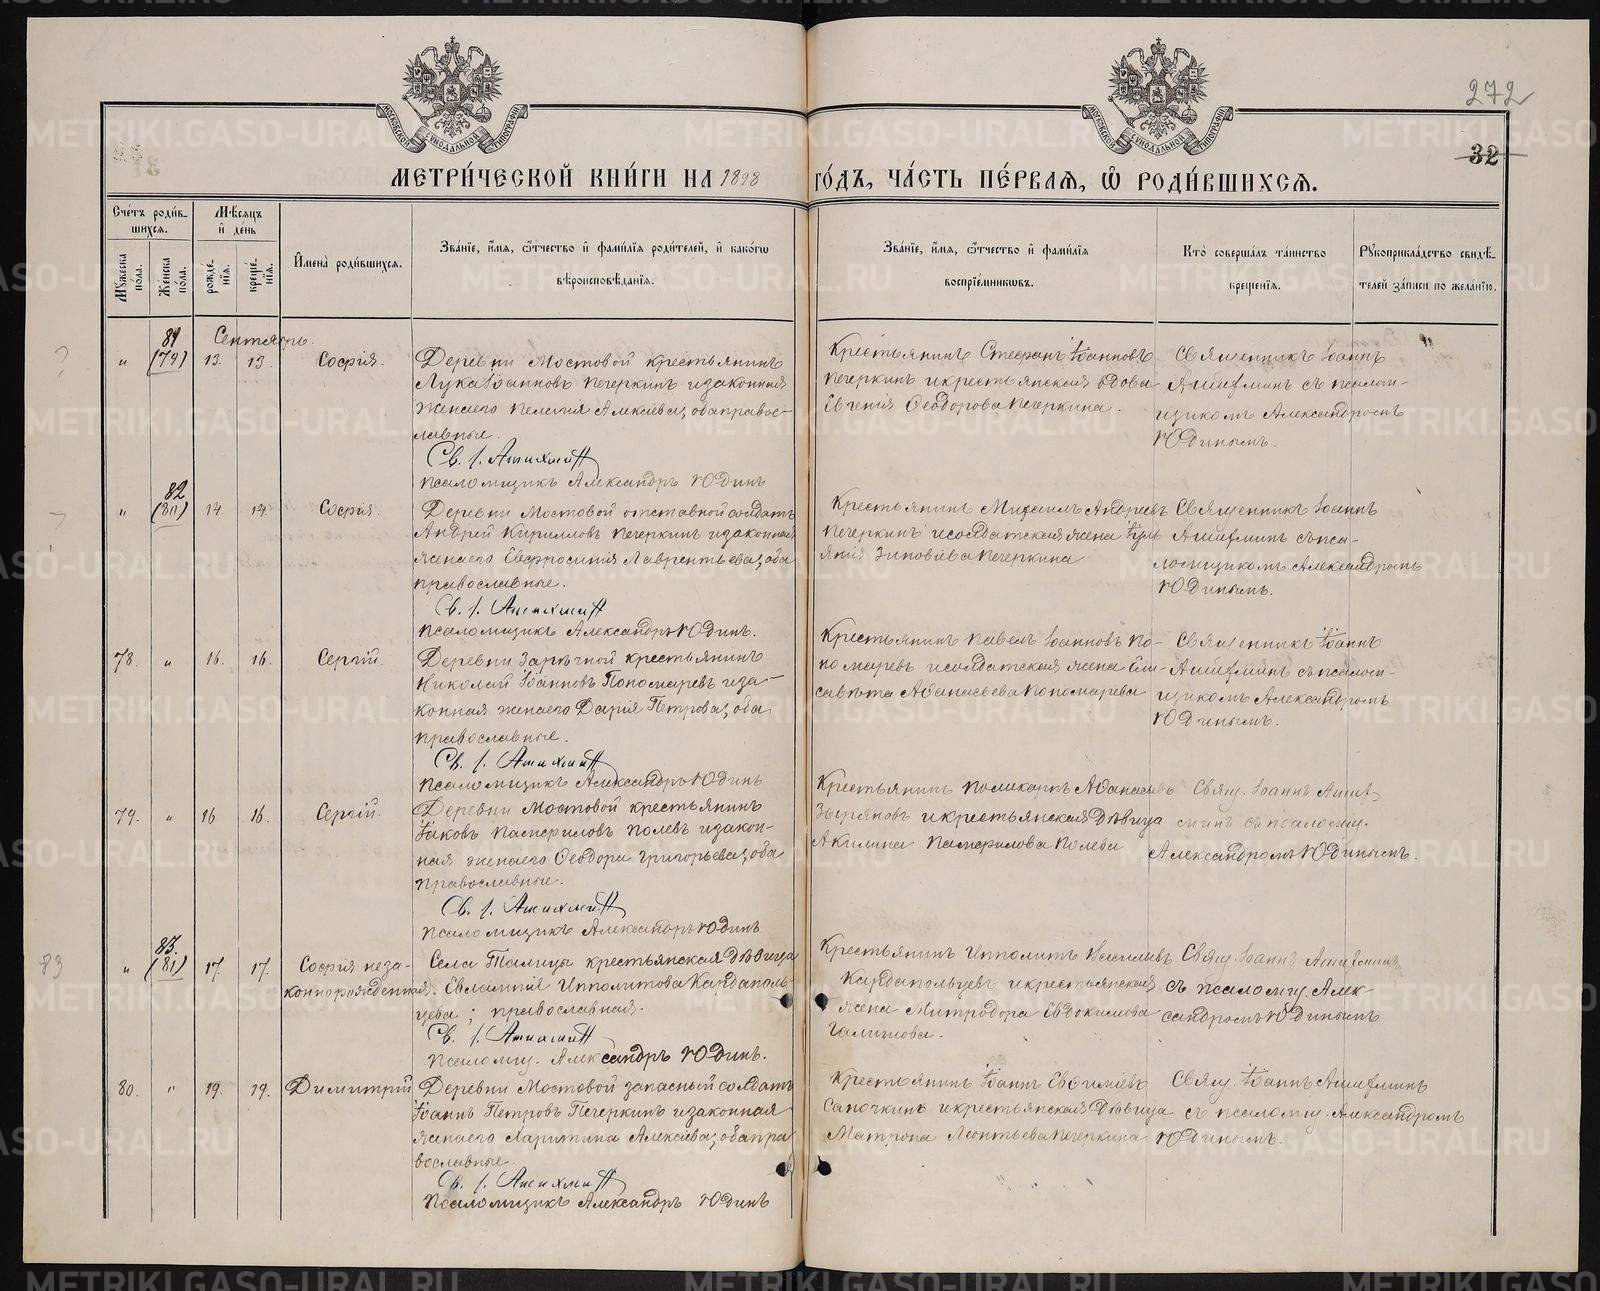 272
32
МЕТРИ́ЧЕСКОЙ КНИ́ГИ НА 1898
ГО́ДЪ, ЧА́СТЬ ПЕ́РВАЯ, Ѡ РОДИ́ВШИХСЯ.
Сче́тъ роди́в-
шихся.
Му́жеска по́ла.
Же́нска по́ла.
Мѣ́сяцъ
и҆ де́нь
рожде́-
нїя.
креще́-
нїя.
И҆мена̀ роди́вшихся.
Зва́нїе, и҆́мя, ѻ҆́тчество и҆ фами́лїя роди́телей, и҆ како́гѡ
вѣроисповѣ́данїя.
Зва́нїе, и҆́мя, ѻ҆́тчество и҆ фами́лїя
воспрїе́мникѡвъ.
Кто̀ соверша́лъ та́инство
креще́нїя.
Рꙋкоприкла́дство свидѣ́-
телей за́писи по жела́нїю.
Сентябрь.
81
" (79) 13. 13. Софія.
Деревни Мостовой крестьянинъ
Лука Іоанновъ Печеркинъ и законная
жена его Пелагія Алексіева; оба правос-
лавные.
Св. І. Ашихминъ
Псаломщикъ Александръ Юдинъ
Крестьянинъ Стефанъ Іоанновъ
Печеркинъ и крестьянская вдова
Евгенія Ѳеодорова Печеркина.
Священникъ Іоаннъ
Ашихминъ съ псалом-
щикомъ Александромъ
Юдинымъ.
82
" (80) 14. 14. Софія.
Деревни Мостовой отставной солдатъ
Андрей Кирилловъ Печеркинъ и законная
жена его Евфросинія Лаврентьева; оба
православные.
Св. І. Ашихминъ
Псаломщикъ Александръ Юдинъ.
Крестьянинъ Михаилъ Андреевъ
Печеркинъ и солдатская жена Іулі-
янія Зиновіева Печеркина
Священникъ Іоаннъ
Ашихминъ съ пса-
ломщикомъ Александромъ
Юдинымъ.
78. " 16. 16. Сергій.
Деревни Зарѣчной крестьянинъ
Николай Іоанновъ Пономаревъ и за-
конная жена его Дарія Петрова; оба
православные.
Св. І. Ашихминъ
Псаломщикъ Александръ Юдинъ
Крестьянинъ Павелъ Іоанновъ По-
номаревъ и солдатская жена Ели-
савѣта Аѳанасьева Пономарева
Священникъ Іоаннъ
Ашихминъ съ псалом-
щикомъ Александромъ
Юдинымъ.
79. " 16 16. Сергій.
Деревни Мостовой крестьянинъ
Іаковъ Памфиловъ Полевъ и закон-
ная жена его Ѳеодора Григорьева; оба
православные.
Св. І. Ашихминъ
Псаломщикъ Александръ Юдинъ
Крестьянинъ Поликарпъ Аѳанасьевъ
Зыряновъ и крестьянская дѣвица
Акилина Памфилова Полева
Свящ. Іоаннъ Аших-
минъ съ псаломщ.
Александромъ Юдинымъ.
83
83.
" (81) 17. 17. Софія неза-
коннорожденная.
Села Талицы крестьянская дѣвица
Евлампія Ипполитова Кайдаполь-
цева; православная.
Св. І. Ашихминъ
Псаломщ. Александръ Юдинъ.
Крестьянинъ Ипполитъ Васильевъ
Кайдапольцевъ и крестьянская
жена Митродора Евдокимова
Галишова.
Свящ. Іоаннъ Ашихминъ
съ псаломщ. Алек-
сандромъ Юдинымъ
80. " 19. 19. Димитрій
Деревни Мостовой запасный солдатъ
Іоаннъ Петровъ Печеркинъ и законная
жена его Харитина Алексіева; оба пра-
вославные.
Св. І. Ашихминъ
Псаломщикъ Александръ Юдинъ
Крестьянинъ Іоаннъ Евѳиміевъ
Сапочкинъ и крестьянская дѣвица
Матрона Леонтьева Печеркина
Свящ. Іоаннъ Ашихминъ
съ псаломщ. Александромъ
Юдинымъ.
METRIKI.GASO-URAL.RU